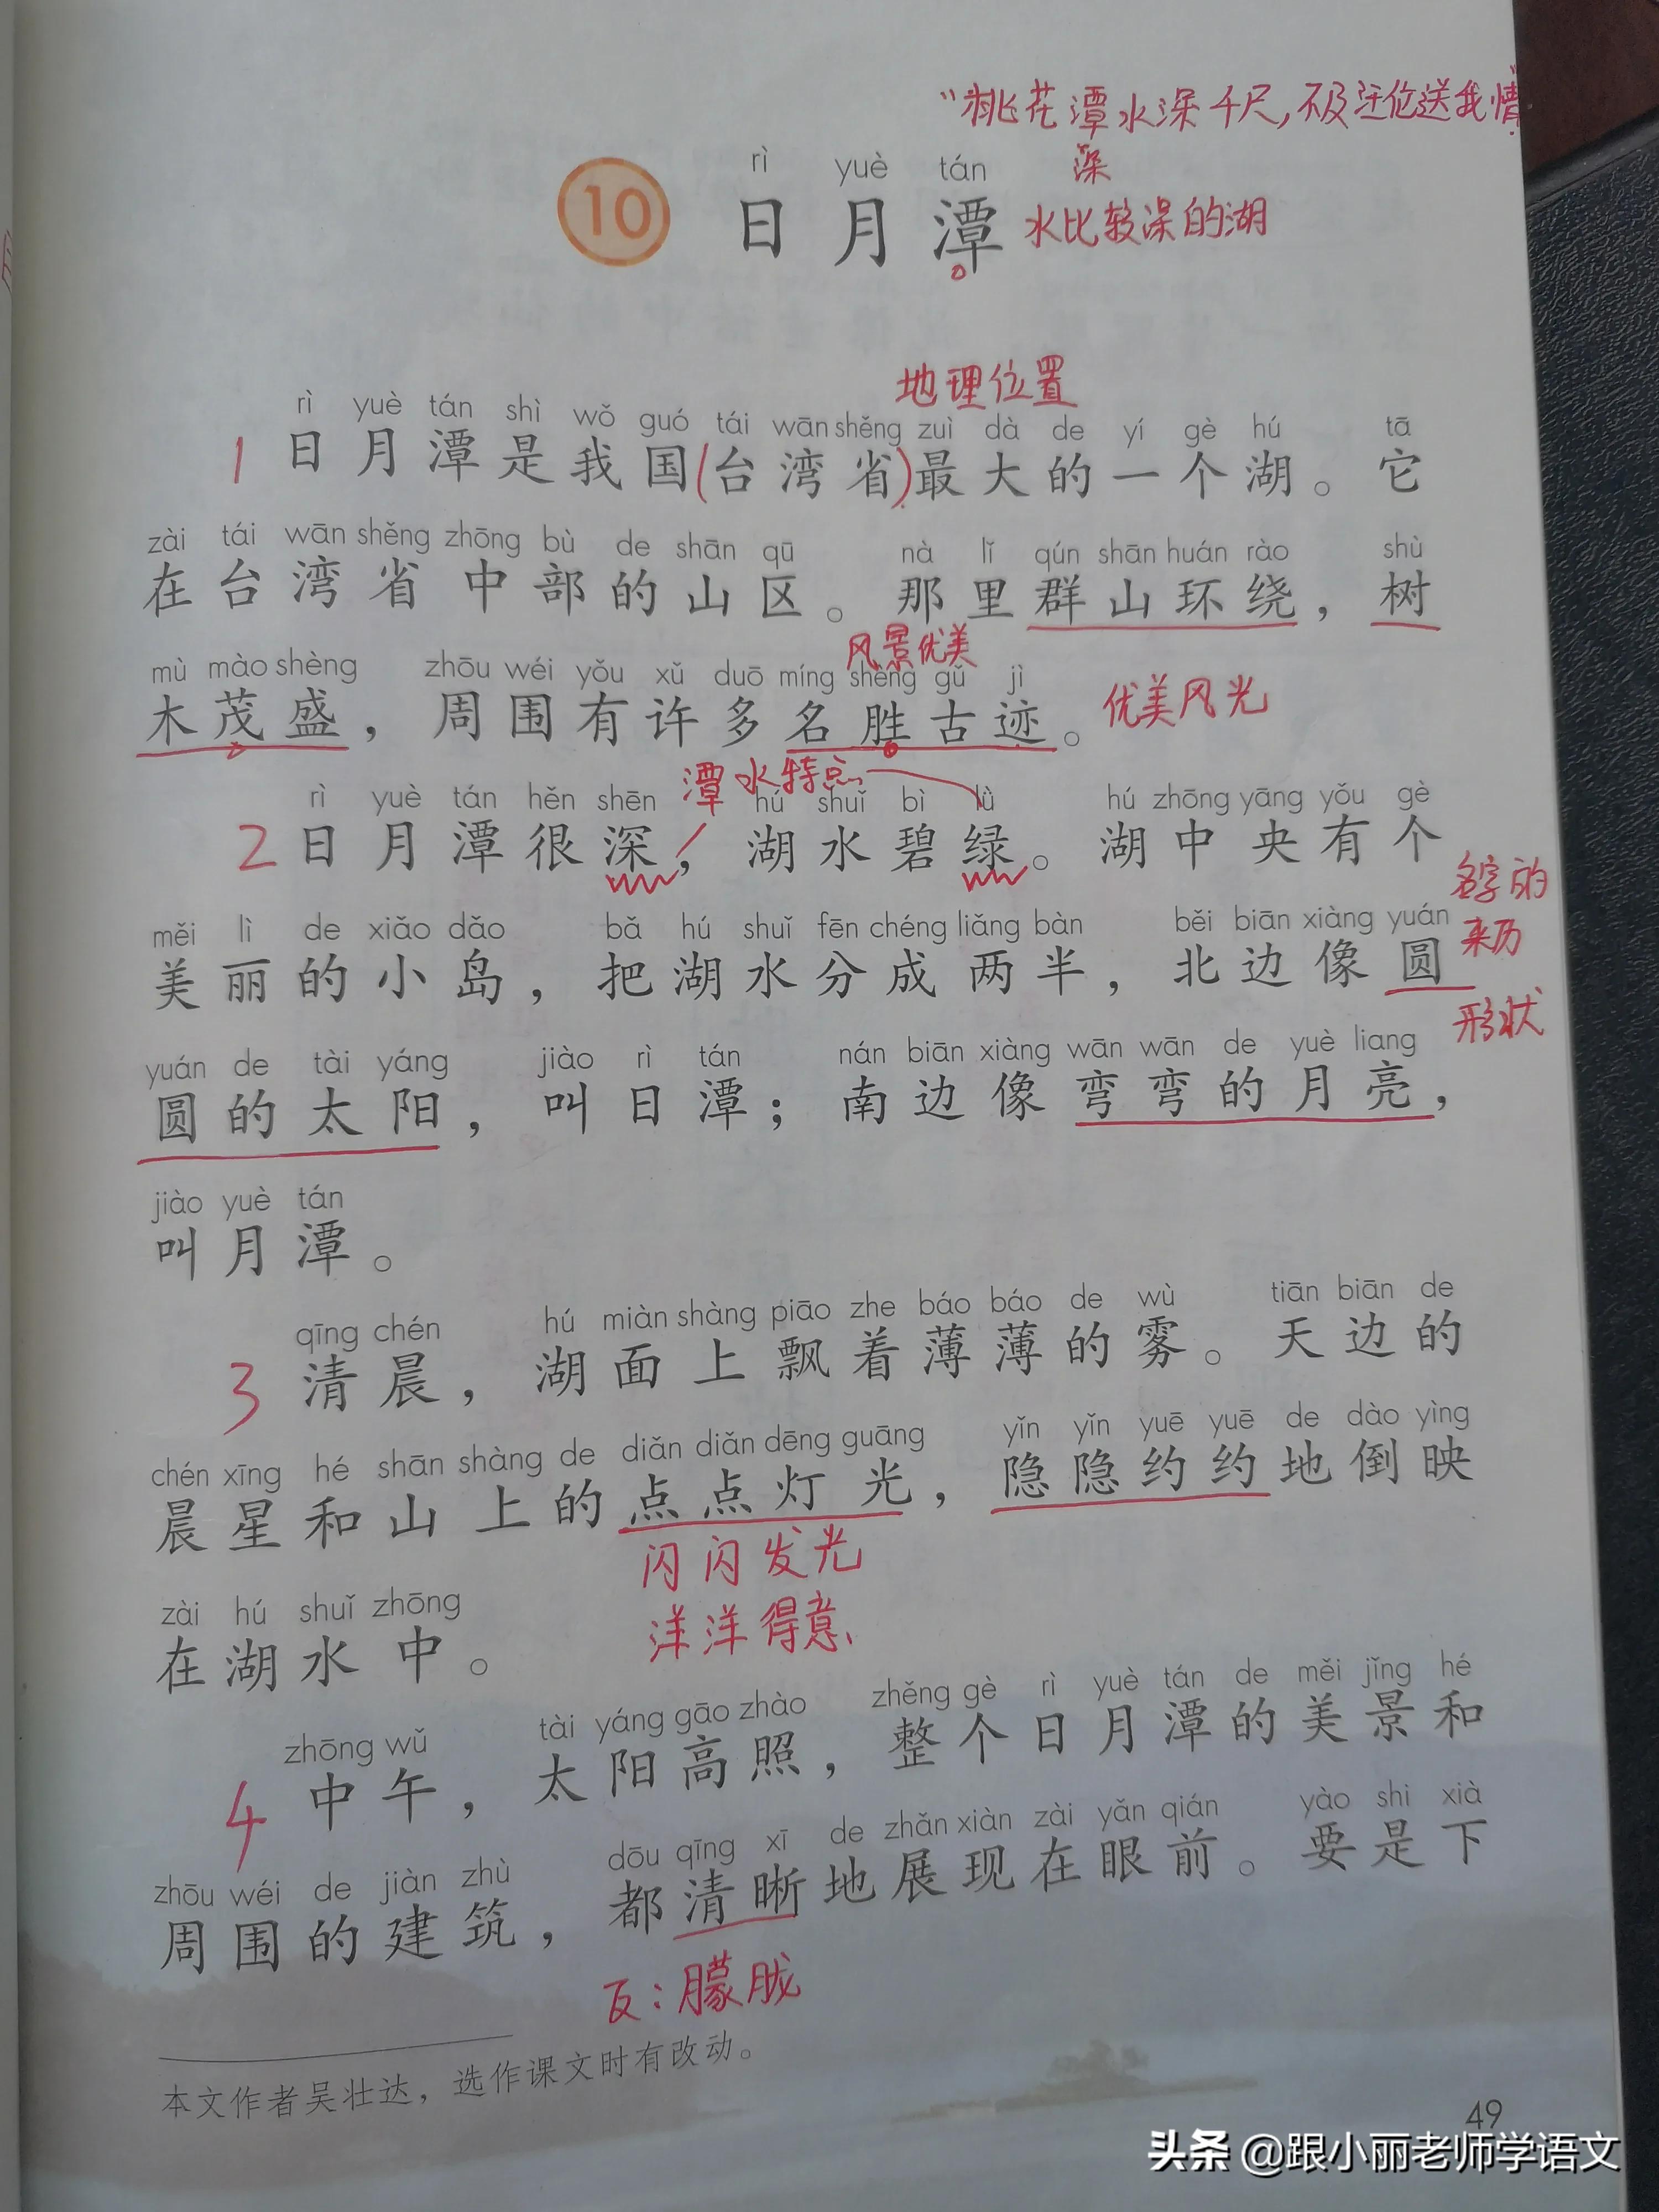 “桃花潭水深千尺,不及汪伦送我情”
rì yuè tán
深
10 日月潭
水比较深的湖
地理位置
rì yuè tán shì wǒ guó tái wān shěng zuì dà de yí gè hú tā
1 日月潭是我国(台湾省)最大的一个湖。它
zài tái wān shěng zhōng bù de shān qū nà lǐ qún shān huán rào shù
在台湾省中部的山区。那里群山环绕，树
风景优美
mù mào shèng zhōu wéi yǒu xǔ duō míng shèng gǔ jì
木茂盛，周围有许多名胜古迹。
优美风光
潭水特点
rì yuè tán hěn shēn hú shuǐ bì lǜ hú zhōng yāng yǒu gè
2 日月潭很深，湖水碧绿。湖中央有个
名字的
来历
měi lì de xiǎo dǎo bǎ hú shuǐ fēn chéng liǎng bàn běi biān xiàng yuán
美丽的小岛，把湖水分成两半，北边像圆
形状
yuán de tài yáng jiào rì tán nán biān xiàng wān wān de yuè liang
圆的太阳，叫日潭；南边像弯弯的月亮，
jiào yuè tán
叫月潭。
qīng chén hú miàn shàng piāo zhe báo báo de wù tiān biān de
3 清晨，湖面上飘着薄薄的雾。天边的
chén xīng hé shān shàng de diǎn diǎn dēng guāng yǐn yǐn yuē yuē de dào yìng
晨星和山上的点点灯光，隐隐约约地倒映
闪闪发光
zài hú shuǐ zhōng
在湖水中。
洋洋得意
zhōng wǔ tài yáng gāo zhào zhěng gè rì yuè tán de měi jǐng hé
4 中午，太阳高照，整个日月潭的美景和
zhōu wéi de jiàn zhù dōu qīng xī de zhǎn xiàn zài yǎn qián yào shi xià
周围的建筑，都清晰地展现在眼前。要是下
反:朦胧
本文作者吴壮达，选作课文时有改动。
49
头条 @跟小丽老师学语文